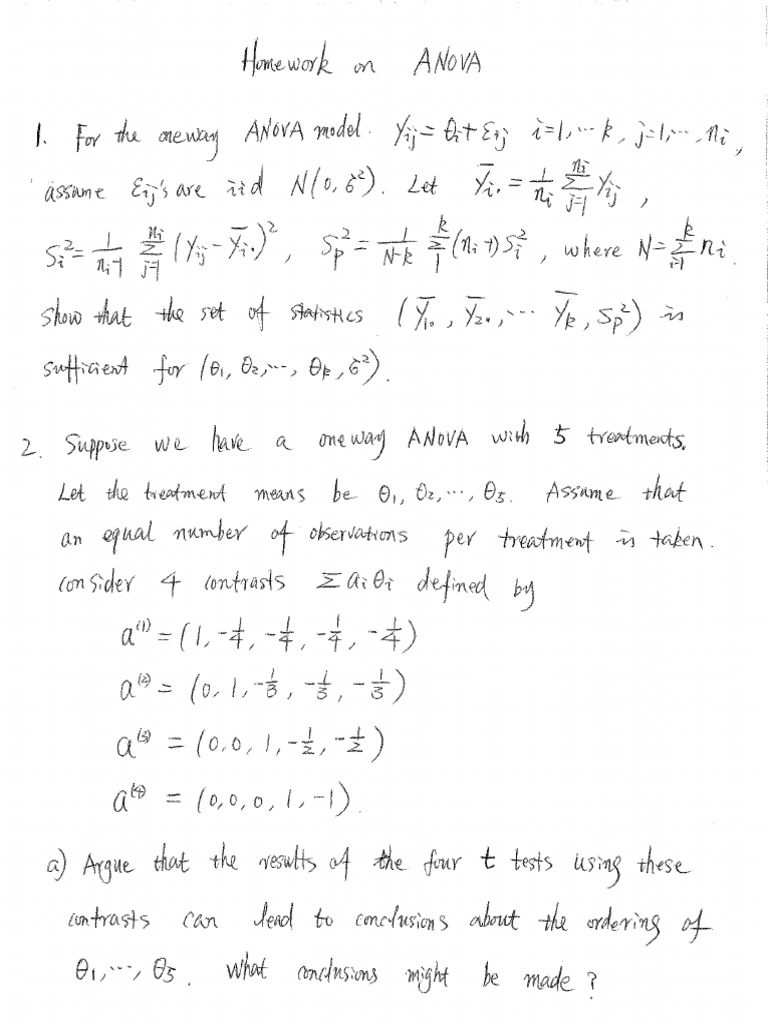 Homework on ANOVA
1. For the oneway ANOVA model. Yij = θi + εij i=1,⋯k, j=1,⋯,ni,
assume εij's are iid N(0, σ²). Let Ȳi. = 1/ni Σ_{j=1}^{ni} Yij ,
Si² = 1/(ni-1) Σ_{j=1}^{ni} (Yij - Ȳi.)², Sp² = 1/(N-k) Σ_{1}^{k} (ni-1) Si², where N = Σ_{i=1}^{k} ni.
show that the set of statistics (Ȳ1., Ȳ2., ⋯ Ȳk, Sp²) is
sufficient for (θ1, θ2, ⋯, θk, σ²).
2. Suppose we have a oneway ANOVA with 5 treatments.
Let the treatment means be θ1, θ2, ⋯, θ5. Assume that
an equal number of observations per treatment is taken.
consider 4 contrasts Σ aiθi defined by
a⁽¹⁾ = (1, -1/4, -1/4, -1/4, -1/4)
a⁽²⁾ = (0, 1, -1/3, -1/3, -1/3)
a⁽³⁾ = (0, 0, 1, -1/2, -1/2)
a⁽⁴⁾ = (0, 0, 0, 1, -1).
a) Argue that the results of the four t tests using these
contrasts can lead to conclusions about the ordering of
θ1, ⋯, θ5. What conclusions might be made?